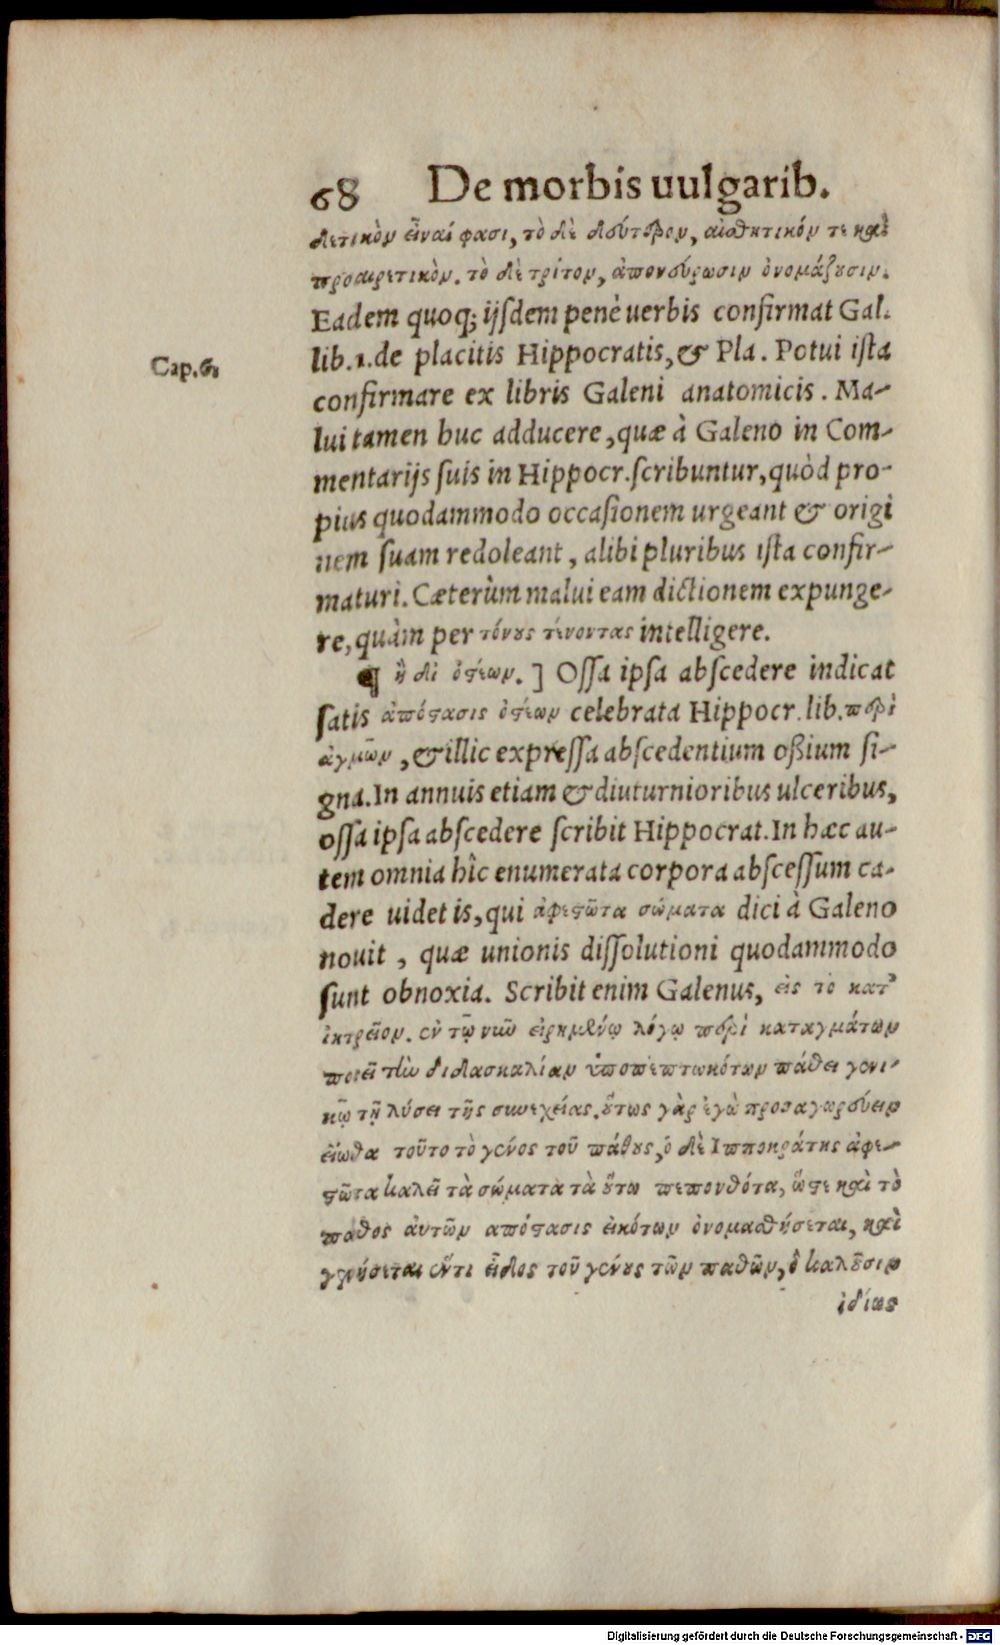 68 De morbis uulgarib.
δετικὸν εἶναί φασι, τὸ δὲ δεύτερον, αἰσθητικόν τε καὶ
προαιρετικὸν. τὸ δὲ τρίτον, ἀπονεύρωσιν ὀνομάζουσιν.
Eadem quoq; ijsdem penè uerbis confirmat Gal.
lib.1.de placitis Hippocratis,& Pla. Potui ista
Cap.6.
confirmare ex libris Galeni anatomicis. Ma-
lui tamen huc adducere, quæ à Galeno in Com-
mentarijs suis in Hippocr.scribuntur,quòd pro-
pius quodammodo occasionem urgeant & origi
nem suam redoleant, alibi pluribus ista confir-
maturi. Cæterùm malui eam dictionem expunge-
re,quàm per τόνους τένοντας intelligere.
¶ ἢ δι ὀστέων.] Ossa ipsa abscedere indicat
satis ἀπόστασις ὀστέων celebrata Hippocr. lib.περὶ
ἀγμῶν, & illic expressa abscedentium oßium si-
gna.In annuis etiam & diuturnioribus ulceribus,
ossa ipsa abscedere scribit Hippocrat.In hæc au-
tem omnia hîc enumerata corpora abscessum ca-
dere uidet is,qui ἀφεστῶτα σώματα dici à Galeno
nouit, quæ unionis dissolutioni quodammodo
sunt obnoxia. Scribit enim Galenus, εἰς τὸ κατ'
ἰητρεῖον. ἐν τῷ νῦν εἰρημένῳ λόγῳ περὶ καταγμάτων
ποιεῖ τὴν διδασκαλίαν ὑποπεπτωκότων πάθει γενι-
κῷ τῇ λύσει τῆς συνεχείας. οὕτως γὰρ ἐγὼ προσαγωρεύειν
εἴωθα τοῦτο τὸ γένος τοῦ πάθους, ὁ δὲ Ἱπποκράτης ἀφε-
στῶτα καλεῖ τὰ σώματα τὰ οὕτω πεπονθότα, ὥστε καὶ τὸ
παθος ἀυτῶν απόστασις εἰκότων ὀνομασθήσεται, καὶ
γενήσεται ἔντι εἶδος τοῦ γένους τῶν παθῶν, ὃ καλοῦσιν
ἰδίως
Digitalisierung gefördert durch die Deutsche Forschungsgemeinschaft - DFG